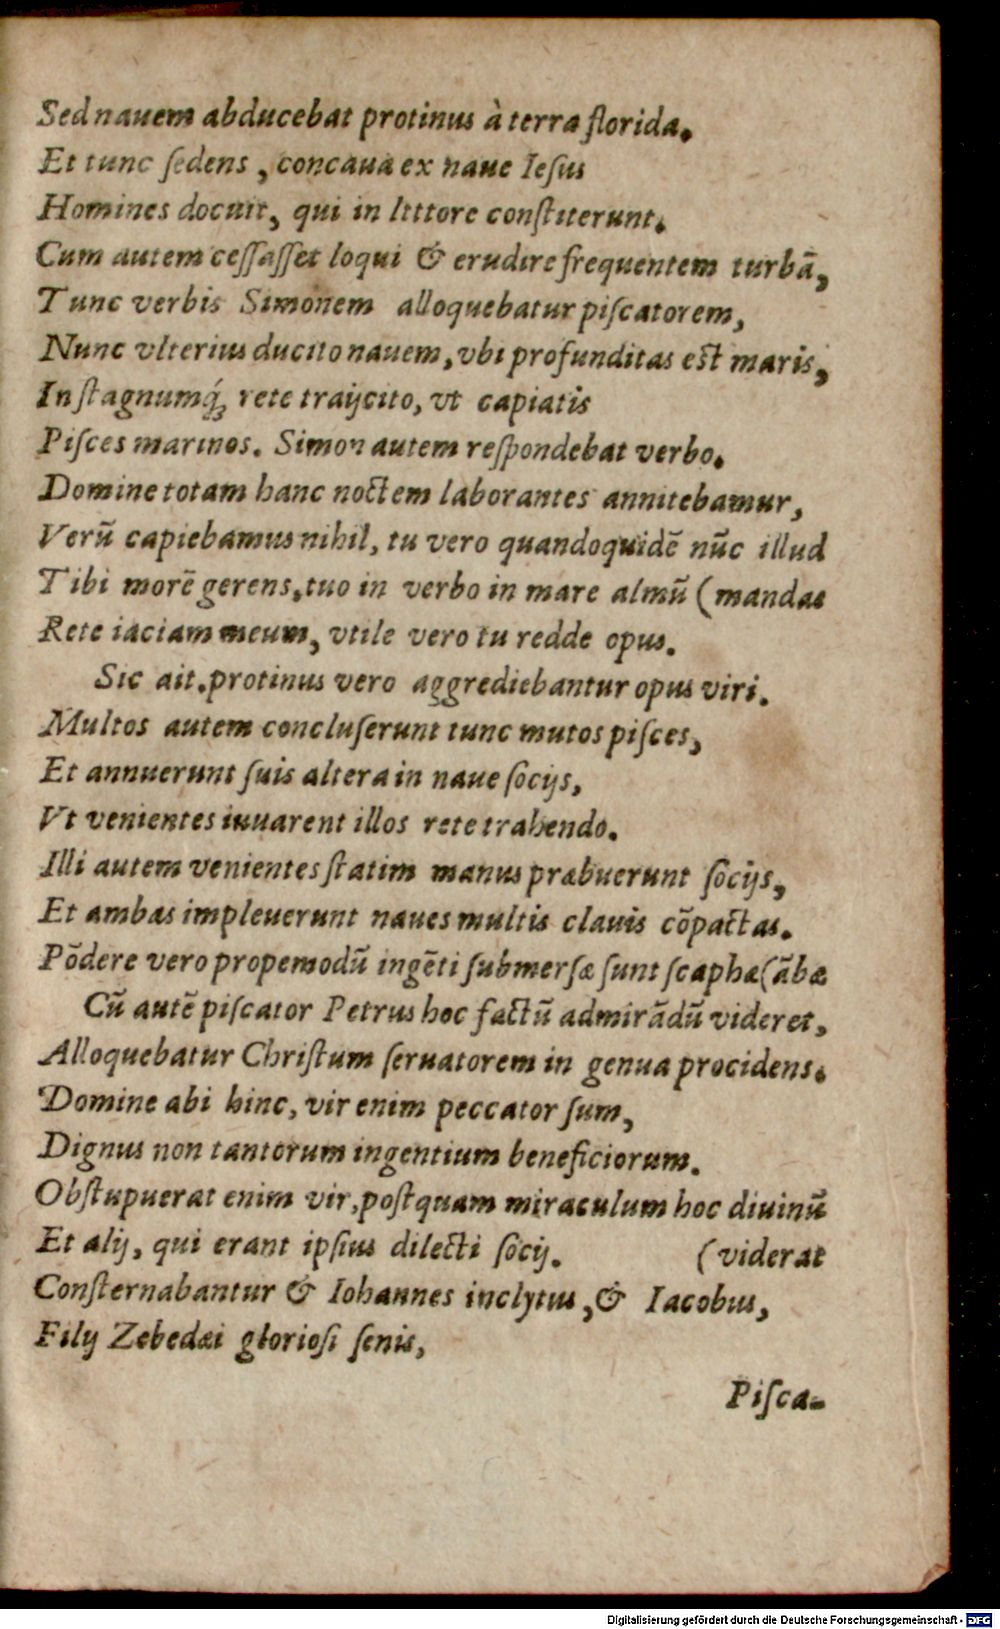 Sed nauem abducebat protinus à terra florida.
Et tunc ſedens, concaua ex naue Ieſus
Homines docuit, qui in littore conſtiterunt.
Cum autem ceſſaſſet loqui & erudire frequentem turbā,
Tunc verbis Simonem alloquebatur piſcatorem,
Nunc vlterius ducito nauem, vbi profunditas eſt maris,
In ſtagnumq́ꝫ rete traijcito, vt capiatis
Piſces marinos. Simon autem reſpondebat verbo.
Domine totam hanc noctem laborantes annitebamur,
Verū capiebamus nihil, tu vero quandoquidē nūc illud
Tibi morē gerens, tuo in verbo in mare almū (mandas
Rete iaciam meum, vtile vero tu redde opus.
Sic ait. protinus vero aggrediebantur opus viri.
Multos autem concluſerunt tunc mutos piſces,
Et annuerunt ſuis altera in naue ſocijs,
Vt venientes iuuarent illos rete trahendo.
Illi autem venientes ſtatim manus præbuerunt ſocijs,
Et ambas impleuerunt naues multis clauis cōpactas.
Pōdere vero propemodū ingēti ſubmerſæ ſunt ſcaphæ (ābæ
Cū autē piſcator Petrus hoc factū admirādū videret,
Alloquebatur Chriſtum ſeruatorem in genua procidens.
Domine abi hinc, vir enim peccator ſum,
Dignus non tantorum ingentium beneficiorum.
Obſtupuerat enim vir, poſtquam miraculum hoc diuinū
Et alij, qui erant ipſius dilecti ſocij. (viderat
Conſternabantur & Iohannes inclytus, & Iacobus,
Filij Zebedæi glorioſi ſenis,
Piſca-
Digitalisierung gefördert durch die Deutsche Forschungsgemeinschaft - DFG